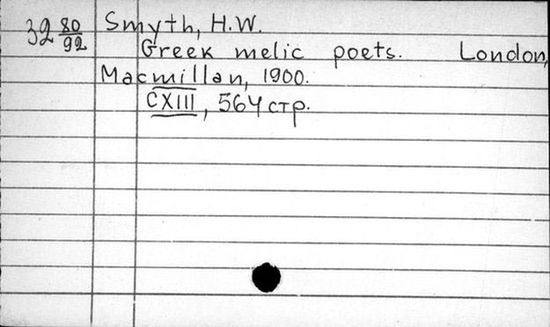 32 80/92 Smyth, H.W.
Greek melic poets. London,
Macmillan, 1900.
CXIII, 564 стр.